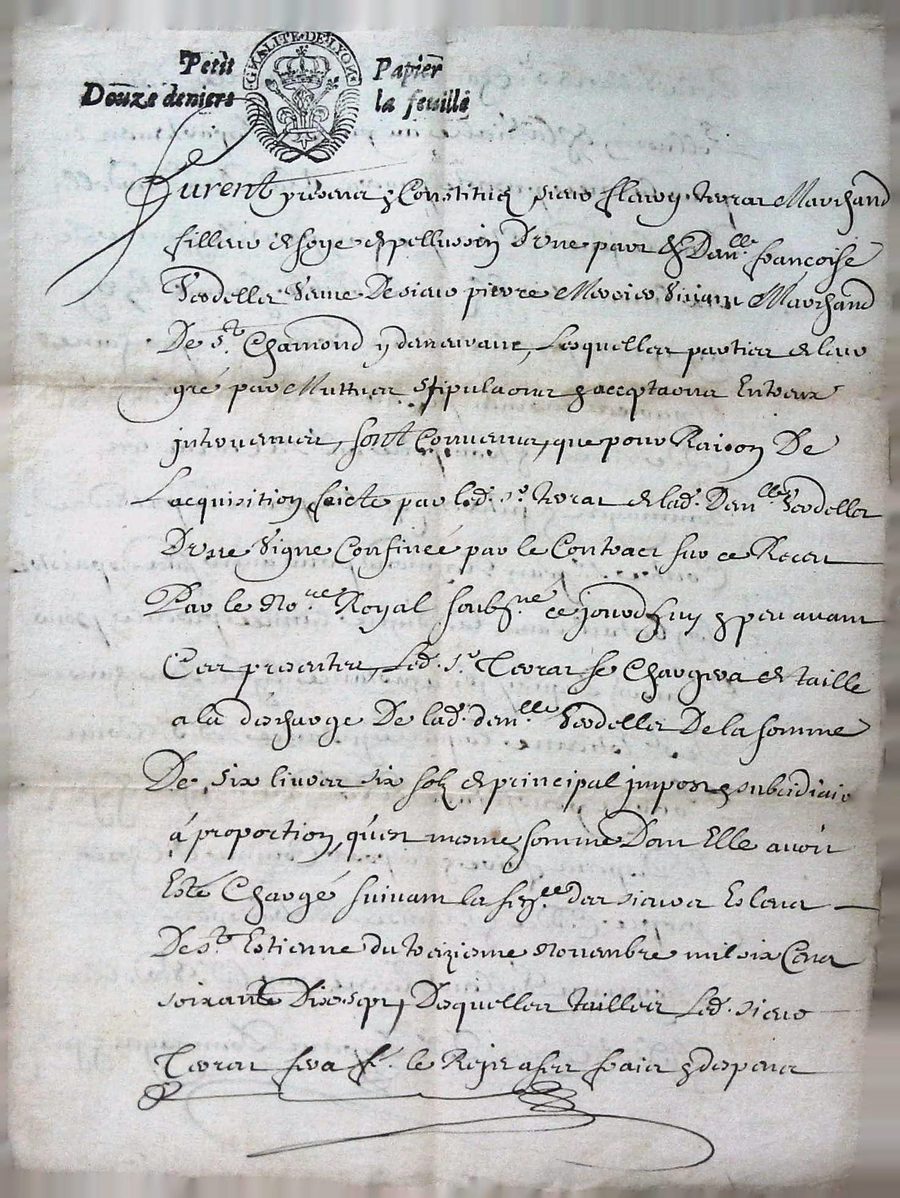 Petit Papier
GNALITE·DE·LYON
Douze deniers la feuille
Furent presens & Constitués sieur fleury terrat Marchand
filleur de soye de pellussin D'une part & Dam.lle françoise
Verdellet vefve De sieur pierre Mercier vivant Marchand
De S.t Chamond y demeurant, Lesquelles parties de leur
gré par Mutues stipulaons & acceptaons Entreux
intervenues, sont Convenues, que pour Raison De
L'acquisition faicte par led. s.r terrat de lad. Dam.lle Verdellet
D'une Vigne Confinée par le Contract sur ce Receu
Par le No.re Royal soubs.né ce jourd'huy & peu avant
Ces presentes, Led. s.r Terrat se Chargera de taille
a la descharge De lad. dam.lle Verdellet De la somme
De six livres six solz de principal impost & subcidiaire
à proportion, qu'est mesme somme Dont Elle avoit
Esté Chargé suivant la des sieurs Esleus
De S.t Estienne du treizieme Novembre mil six Cens
soixante Dix sept, Desquelles tailles Led. sieur
Terrat fera le Rejet a ses frais & despens